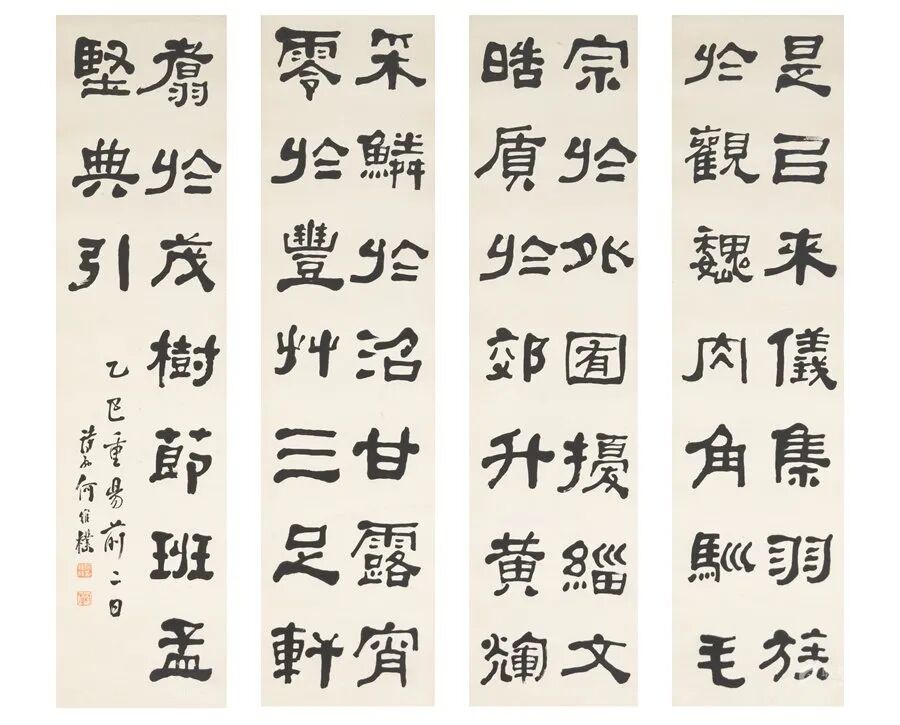 是已来儀集羽族
於觀魏肉角馴毛
宗於外囿擾緇文
晧質於郊升黃煇
采鱗於沼甘露宵
零於豐艸三足軒
翥於茂樹節班孟
堅典引
乙巳重陽前二日
詩孫何維樸